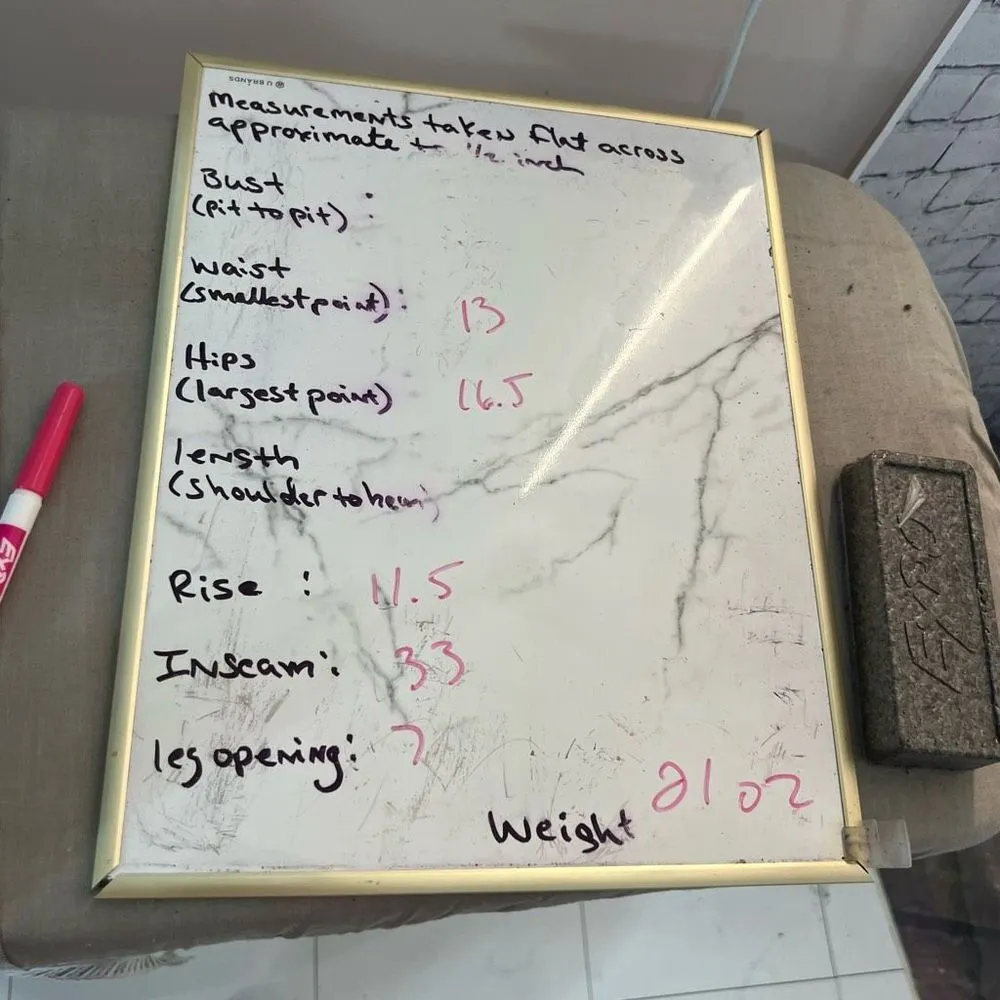 U BRANDS
Measurements taken flat across
approximate to 1/2 inch
Bust
(pit to pit) :
waist
(smallest point) : 13
Hips
(largest point) 16.5
length
(shoulder to hem)
Rise : 11.5
Inseam : 33
leg opening : 7
Weight 21 oz
EXPO